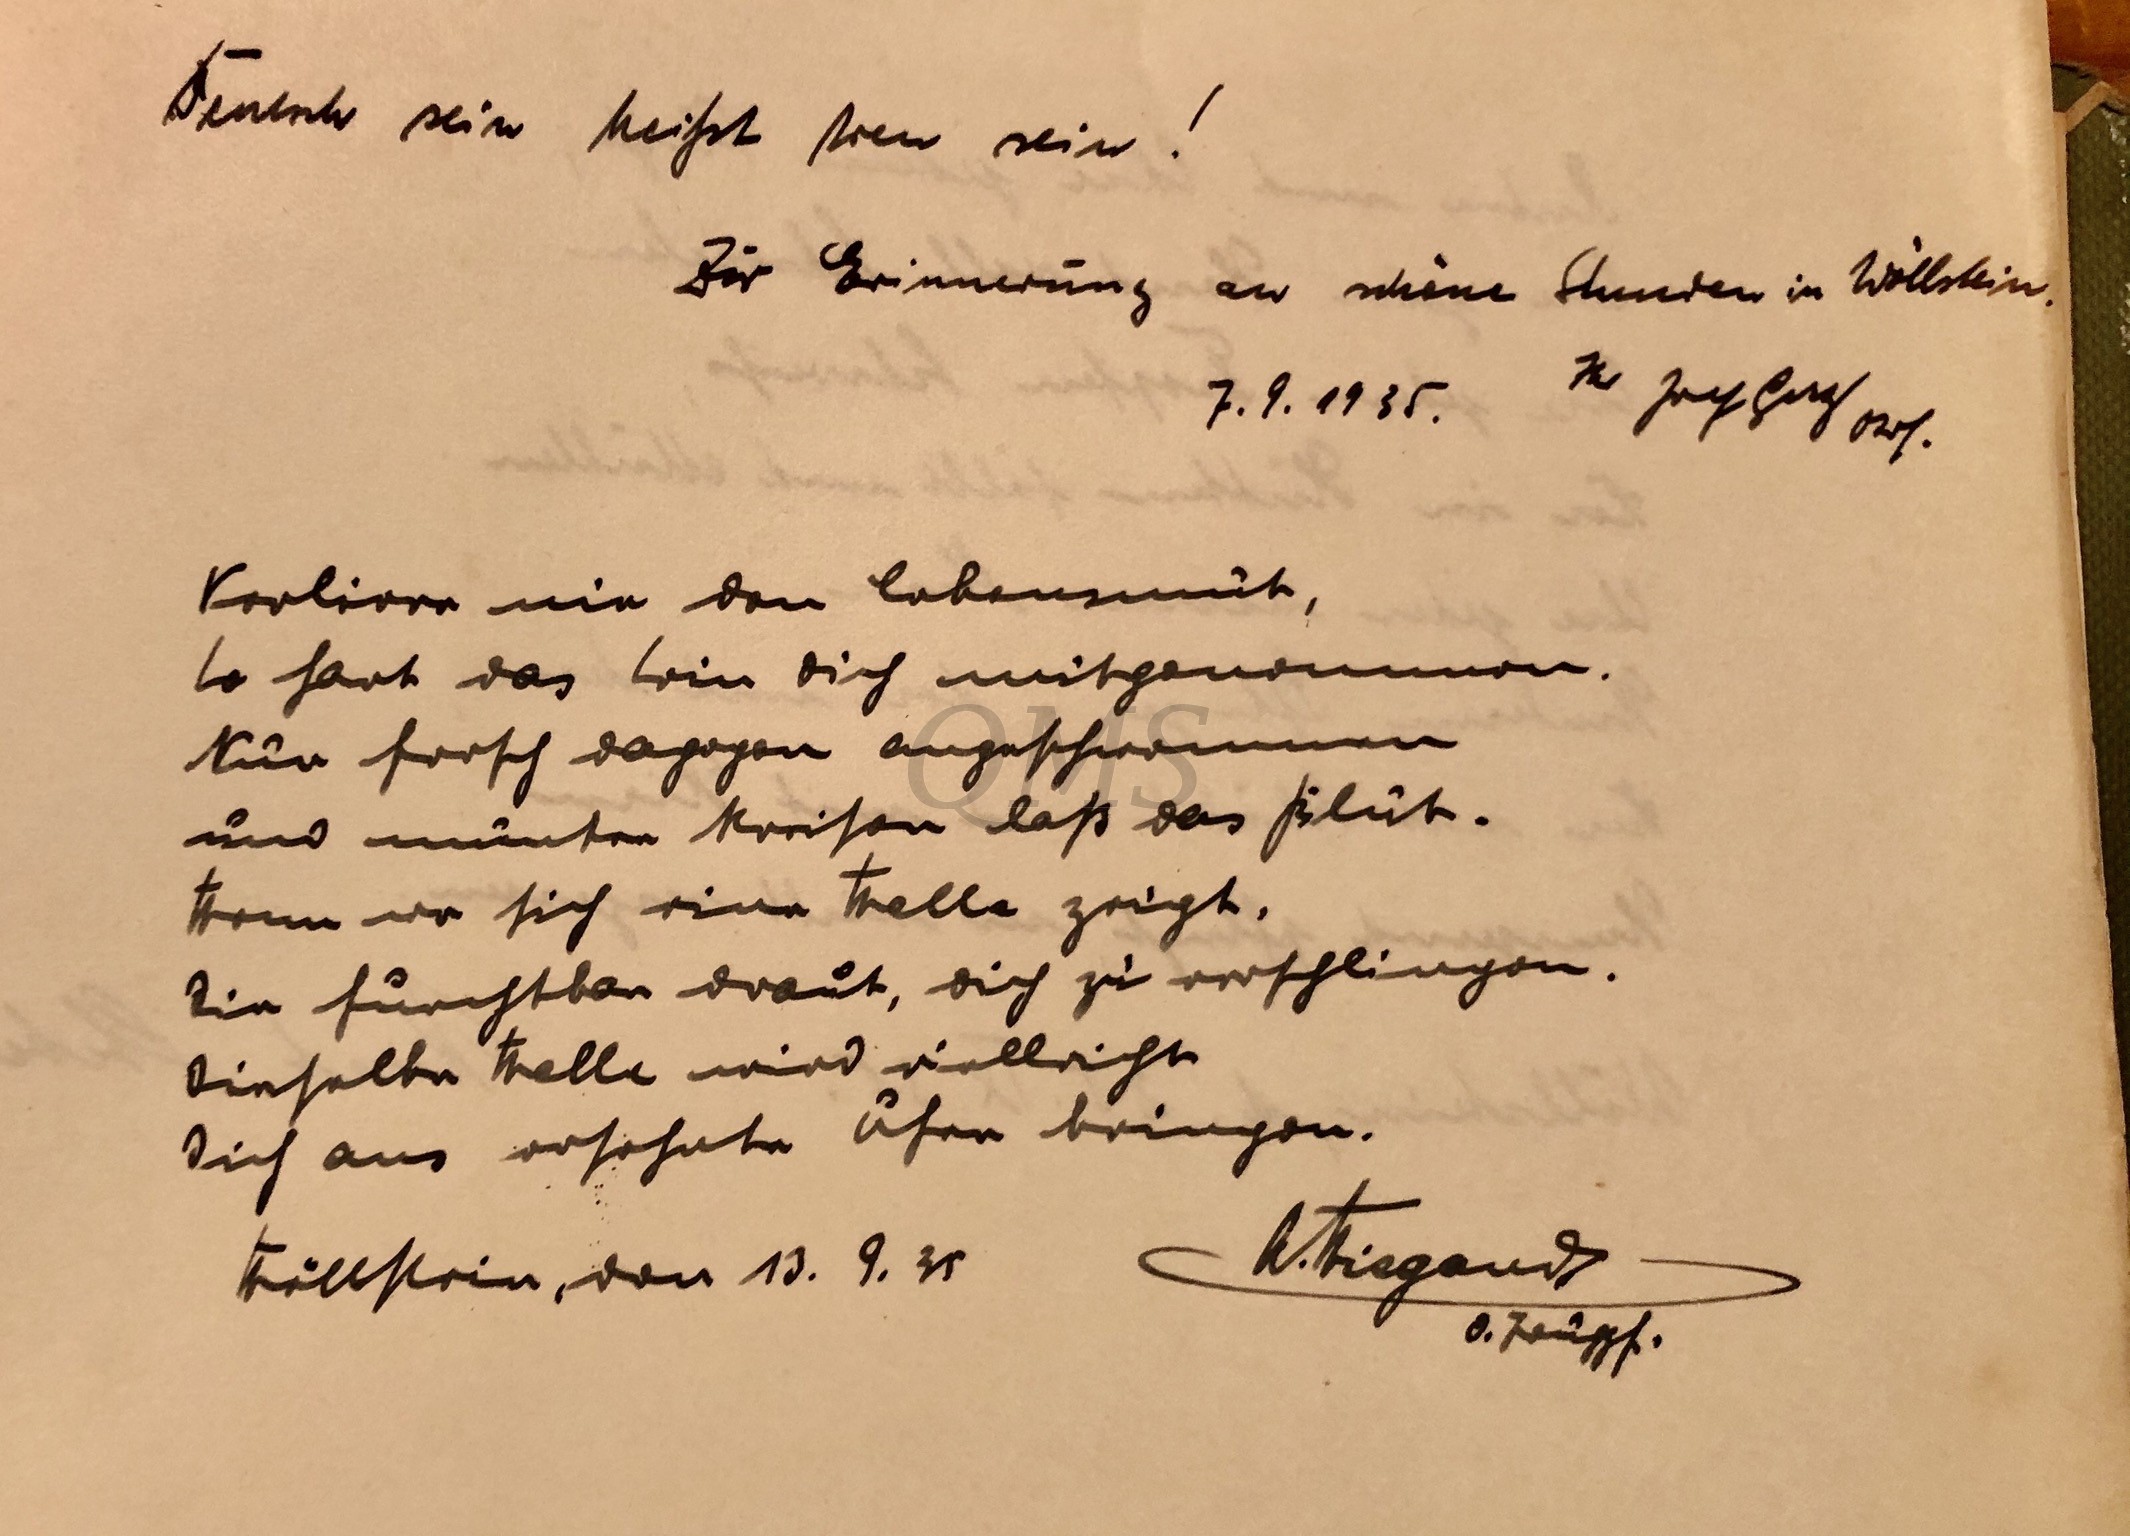 Deutsch sein heißt treu sein!
Zur Erinnerung an schöne Stunden in Wöllstein.
7.9.1935. Ihr Josef
Verliere nie den Lebensmut,
So hart das Sein dich mitgenommen.
Nur forsch dagegen angeschwommen
und munter kreisen laß das Blut.
Wenn wo sich eine Welle zeigt,
Die furchtbar draut, dich zu verschlingen.
Dieselbe Welle wird vielleicht
Dich ans ersehnte Ufer bringen.
Wöllstein, den 13. 9. 35
W. Wiegand
OMS